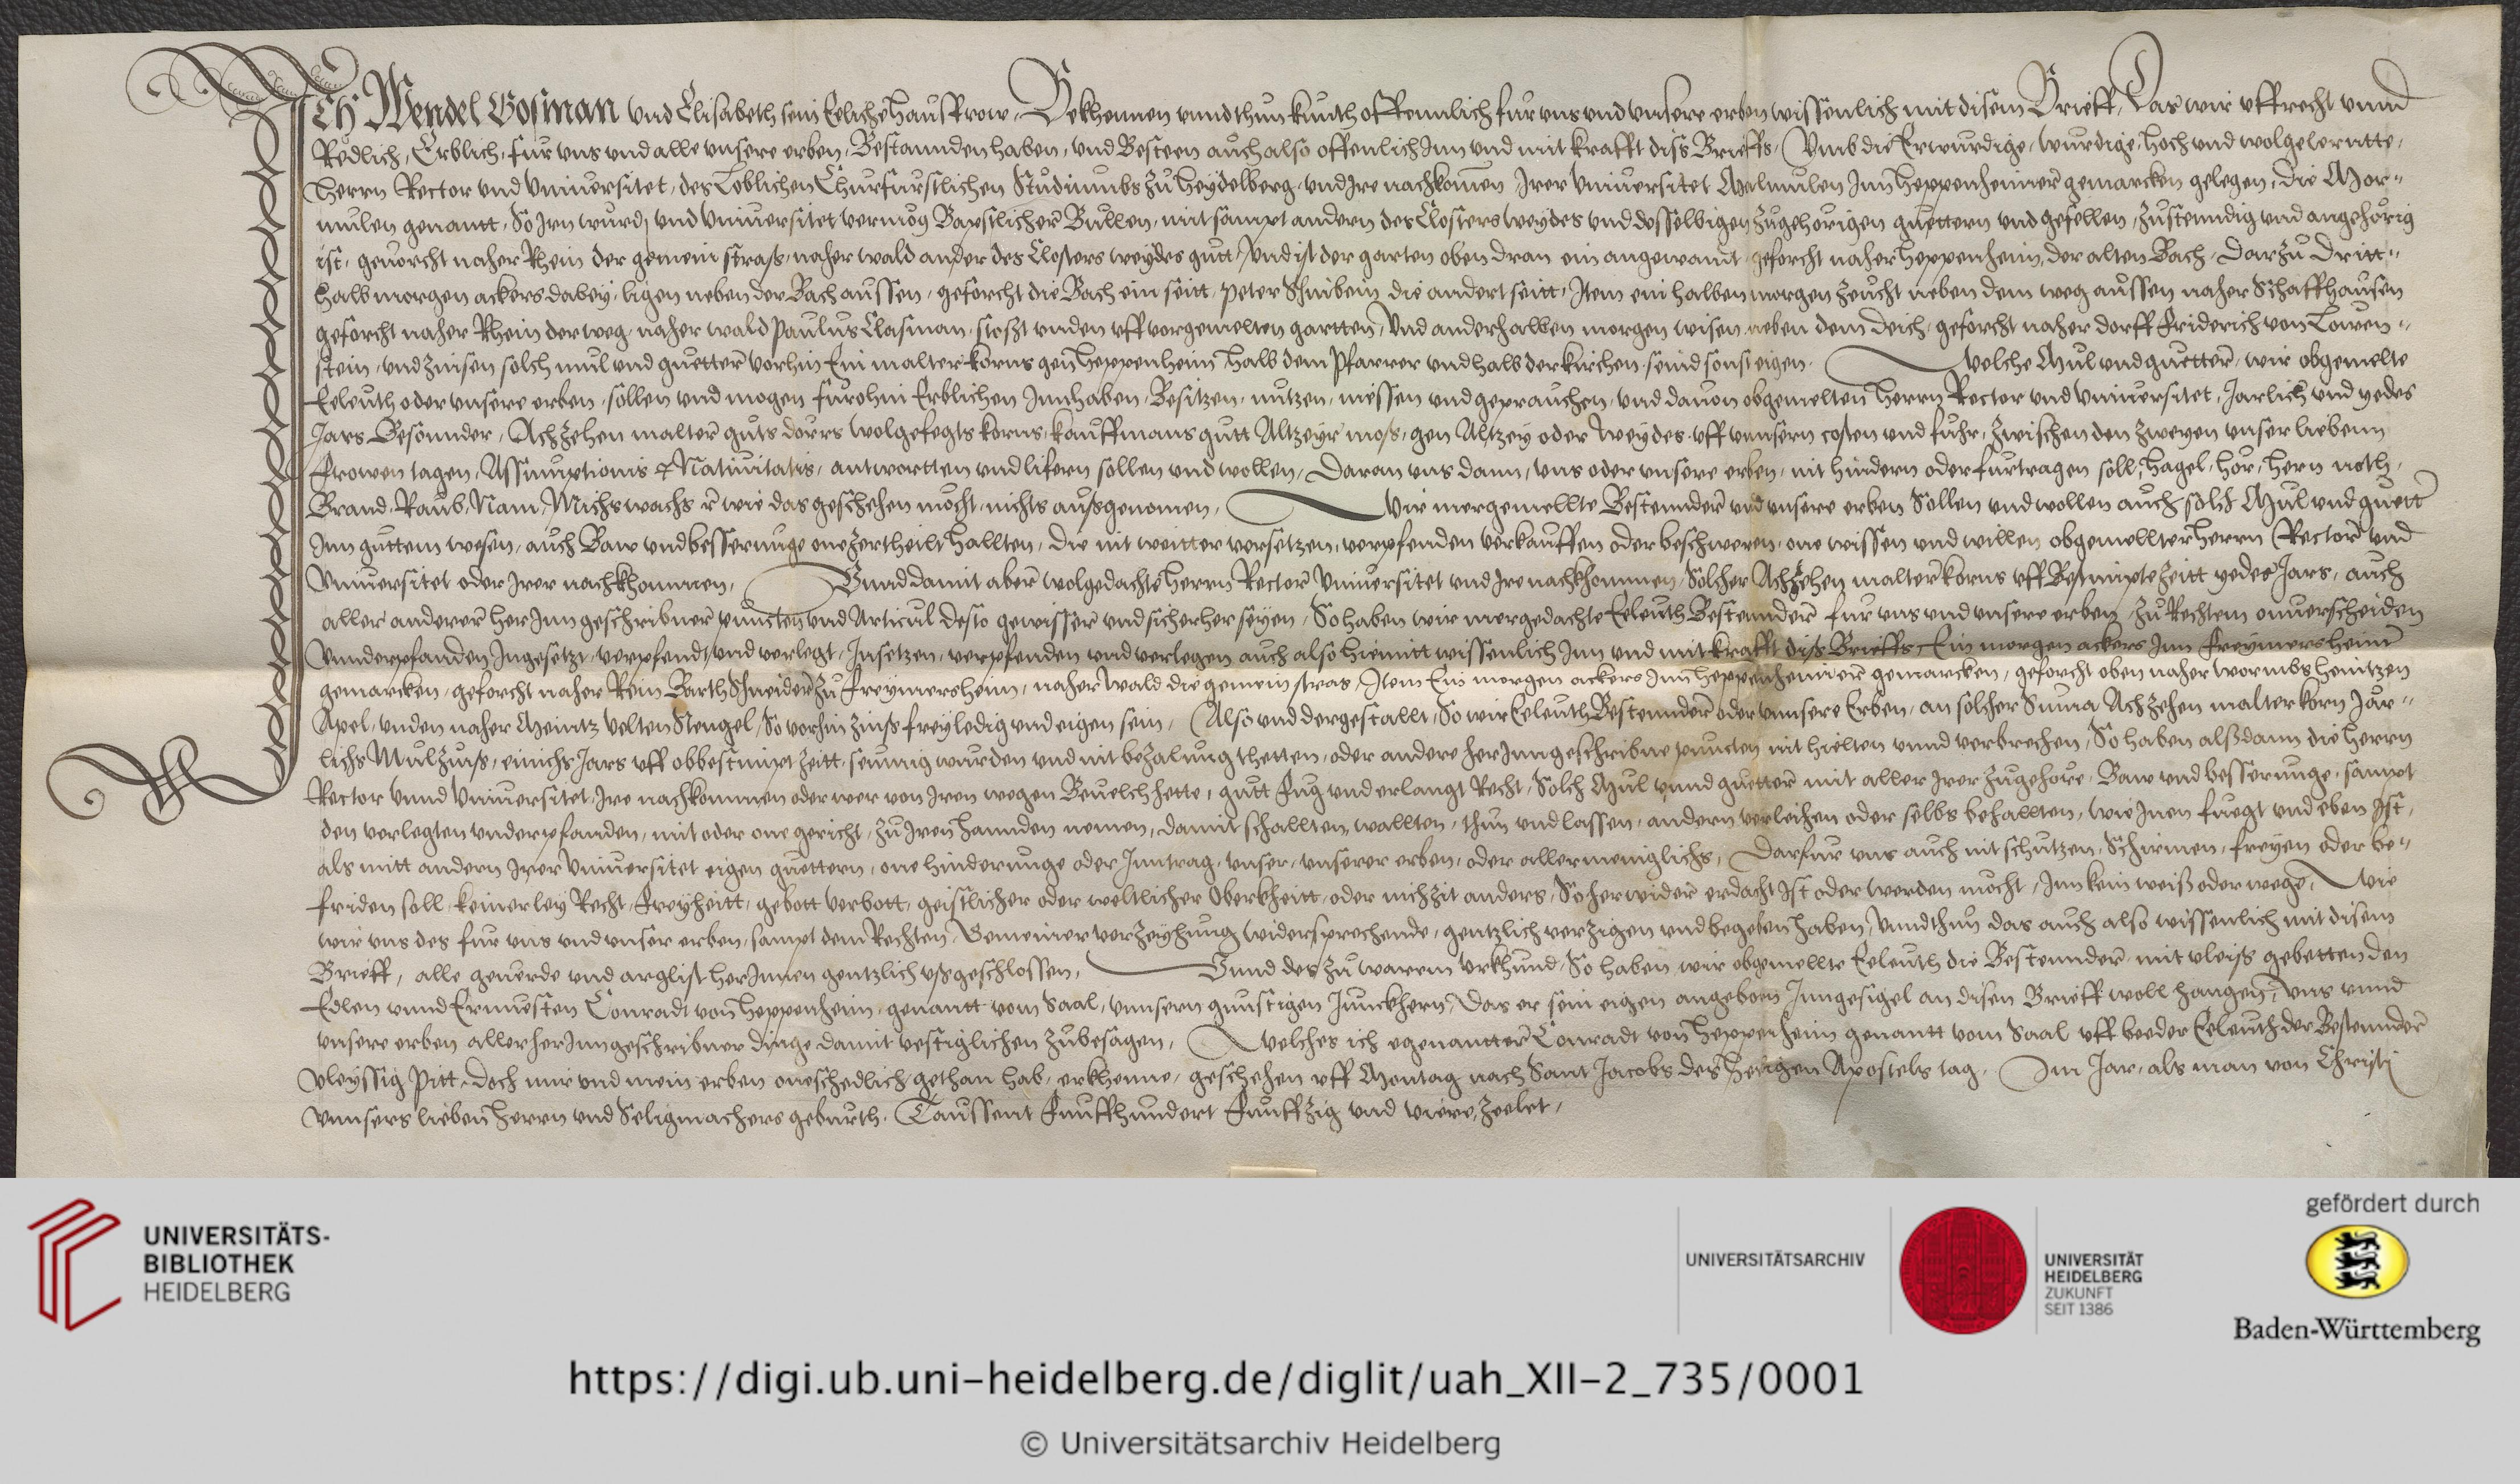 ICH Wendel Gosman vnd Elisabeth sein Eeliche hausfrow, Bekhennen vnnd thun kundth offennlich fur vns vnd vnsere erben wissenlich mit disem Brieff, Das wir vffrecht vnnd
Redlich, Erblich, fur vns vnd alle vnsere erben, Bestannden haben, vnd Besteen auch also offenlich Inn vnd mit krafft diss Brieffs, Vmb die Erwurdige, wurdige, hoch vnd wolgelerntte,
Herrn Rector vnd Vniuersitet, des Loblichen Churfurstlichen Studiumbs zu Heydelberg, vnd Ire nachkomen Irer Vniuersitet Malmulen Inn Heppenheimer gemarcken gelegen, die Mor-
mulen genantt, So Irn wurd, vnd Vniuersitet vermog Bapstlicher Bullen, mit sampt andern des Closters Weydes vnd desselbigen zugehorigen guettern vnd gefellen, zustenndig vnd angehorig
ist, geuorcht naher Rhein der gemein strass, naher wald ander des Closters weydes gutt, Vnd ist der garten oben dran ein angewandt, geforcht naher Heppenheim, der alten Bach, Darzu dritt-
halb morgen ackers dabey, ligen neben der Bach aussen, geforcht die Bach ein seitt, peter die andert seitt, Item ein halben morgen zeucht neben dem weg aussen naher Schaffhausen
geforcht naher Rhein der weg, naher wald Paulus Clasman, stoszt vnden vff vorgemelten gartten, Vnd anderhalben morgen wisen neben dem deich, geforcht naher dorff Friderich von Lowen-
stein, vnd zinsen solch mul vnd guetter vorhin Ein malter korns gen Heppenheim halb dem Pfarrer vnd halb der kirchen, seind sonst eigen. Welche Mul vnd guetter, wir obgemelte
Eeleuth oder vnsere erben, sollen vnd mogen furohin Erblichen Innhaben, Besitzen, nutzen, niessen vnd geprauchen, vnd dauon obgemelten Herrn Rector vnd Vniuersitet, Jarlich vnd yedes
Jars Besonnder, Achzehen malter guts dorrs wolgefegts korns, kauffmans gutt Altzeyr moss, gen Altzey oder Weydes, vff vnnsern costen vnd fuhr, zwischen den zweyen vnser liebenn
Frowen tagen, Assumptionis & Natiuitatis, antwortten vnd lifern sollen vnd wollen, Daran vns dann, vns oder vnsere erben, nit hindern oder furtragen soll, hagel, hor, hern noth,
Brand, Raub, Nam, Michswachs wie das geschehen mocht, nichts aussgenomen, Wir mergemellte Bestennder vnd vnsere erben Sollen vnd wollen auch solch Mul vnd guett
Inn guttem wesen, auch Baw vnd besserunge one zertheilt hallten, die nit weitter versetzen, verpfenden verkauffen oder beschweren, one wissen vnd willen obgemellter Herrn Rector vnd
Vniuersitet oder Irer nachkhommen, Vnnd damit aber wolgedachte Herrn Rector Vniuersitet vnd Ire nachkhommen, Solcher Achzehen malter korns vff Bestimpte zeitt yedes Jars, auch
aller anderer herInn geschribner puncten vnd Articul desto gewisser vnd sicherher seyen, So haben wir mergedachte Eeleuth Bestennder fur vns vnd vnsere erben, zu Rechtem onuerscheiden
Vnnderpfanden Ingesetzt, verpfendt, vnd verlegt, Insetzen, verpfenden vnd verlegen auch also hiemitt wissenlich Inn vnd mit krafft diss Brieffs, Ein morgen ackers Inn Freymersheimer
gemarcken, geforcht naher Rein Barth Schneider zu Freymersheim, naher Wald die gemein stras, Item Ein morgen ackers Inn Heppenheimer gemarcken, geforcht oben naher wormbs Heintzen
Apel, vnden naher Meintz Velten Stengel, So vorhin zinss frey ledig vnd eigen sein, Also vnd dergestallt, So wir Eeleuth Bestennder oder vnnsere Erben, an solcher Suma Achzehen malter korn Jar-
lichs Mulzinss, einichs Jars vff obbestimpt zeitt, seumig wurden vnd nit bezalung thetten, oder andere herInngeschribne puncten nit hielten vnnd verbrechen, So haben alssdann die Herrn
Rector vnnd Vniuersitet, Ire nachkommen oder wer von Iren wegen Beuelch hette, gutt Fug vnd erlangt Recht, Solch Mul vnnd guetter mit aller Irer zugehore, Baw vnd besserunge, sampt
den verlegten vnderpfanden, mit oder one gericht, zu Iren hannden nemen, damit schallten, wallten, thun vnd lassen, andern verleihen oder selbs behallten, wie Inen fuegt vnd eben ist,
als mitt andern Irer Vniuersitet eigen guettern, one hinderunge oder Inntrag, vnser, vnserer erben, oder allermeniglichs, Darfur vns auch nit schutzen, Schirmen, freyen oder be-
friden soll, keinerley Recht, Freyheitt, gebott verbott, geistlicher oder weltlicher Oberkheitt, oder nichzit anders, So herwider erdacht ist oder werden mocht, Inn kein weiss oder wege, Wie
wir vns des fur vns vnd vnser erben, sampt dem Rechten, Gemeiner verzeyhung widersprechende, gentzlich verzigen vnd begeben haben, Vnnd thun das auch also wissenlich mit disem
Brieff, alle geuerde vnd arglist herInnen gentzlich vssgeschlossen, Vnnd des zu warem vrkhund, So haben wir obgemellte Eeleuth die Bestennder, mit vleiss gebetten den
Edlen vnnd Ernuesten Conradt von Heppenheim, genantt vom Saal, vnnsern gunstigen Junckhern, Das er sein eigen angeborn Inngesigel an disen Brieff woll hangen, vns vnnd
vnsere erben aller herInngeschribner dinge damit vestiglichen zubesagen, Welches ich egenantter Conradt von Heppenheim genantt vom Saal vff beeder Eeleuth der Bestennder
vleyssig Pitt, doch mir vnd mein erben oneschedlich, gethan hab, erkhenne, geschehen vff Montag nach Sant Jacobs des Heiligen Apostels tag, Im Jar, als man von Christi
vnnsers lieben Herrn vnd Seligmachers geburth, Taussent Funffhundert Funffzig vnd viere, zeelet,
UNIVERSITÄTS-
BIBLIOTHEK
HEIDELBERG
UNIVERSITÄTSARCHIV
UNIVERSITÄT
HEIDELBERG
ZUKUNFT
SEIT 1386
gefördert durch
Baden-Württemberg
https://digi.ub.uni-heidelberg.de/diglit/uah_XII-2_735/0001
© Universitätsarchiv Heidelberg